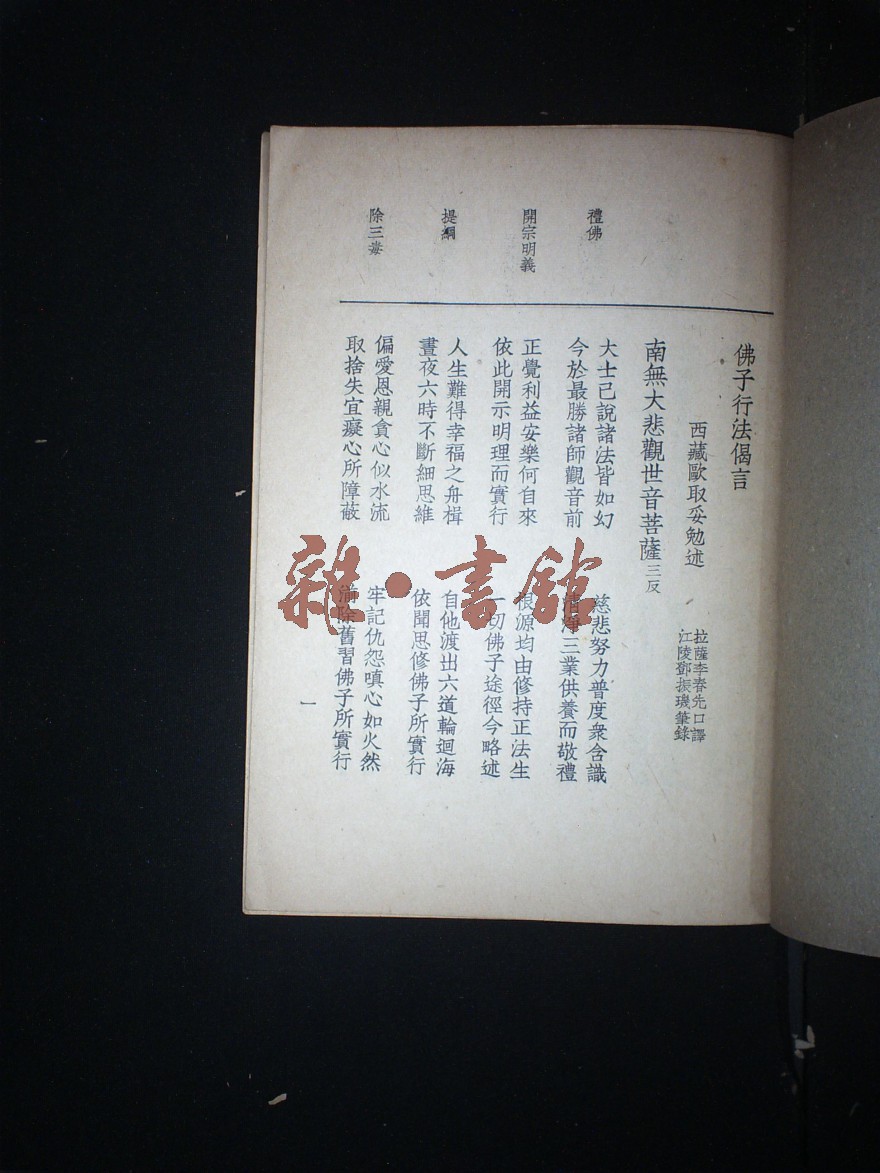 佛子行法偈言
西藏歐取妥勉述
拉薩李春先口譯
江陵鄧振璣筆錄
南無大悲觀世音菩薩三反
禮佛
大士已說諸法皆如幻 慈悲努力普度衆含識
今於最勝諸師觀音前 清淨三業供養而敬禮
開宗明義
正覺利益安樂何自來 根源均由修持正法生
依此開示明理而實行 一切佛子途徑今略述
提綱
人生難得幸福之舟楫 自他渡出六道輪迴海
晝夜六時不斷細思維 依聞思修佛子所實行
除三毒
偏愛恩親貪心似水流 牢記仇怨嗔心如火然
取捨失宜癡心所障蔽 淸除舊習佛子所實行
一
雜·書館